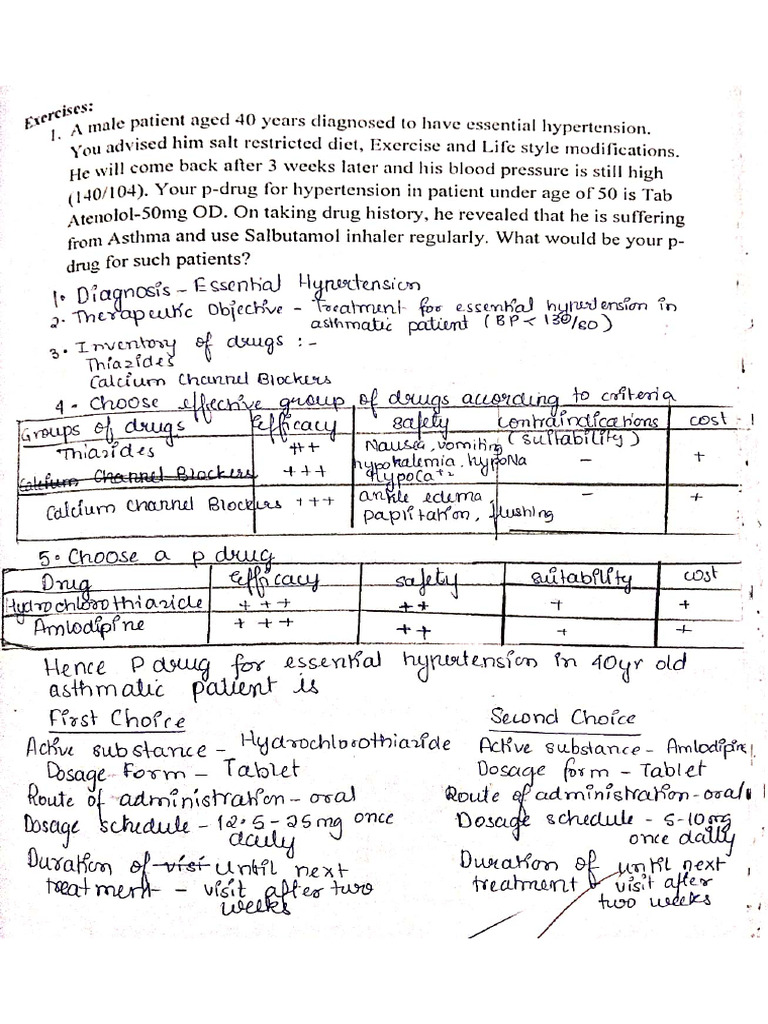 Exercises:
1. A male patient aged 40 years diagnosed to have essential hypertension.
You advised him salt restricted diet, Exercise and Life style modifications.
He will come back after 3 weeks later and his blood pressure is still high
(140/104). Your p-drug for hypertension in patient under age of 50 is Tab
Atenolol-50mg OD. On taking drug history, he revealed that he is suffering
from Asthma and use Salbutamol inhaler regularly. What would be your p-
drug for such patients?
1. Diagnosis - Essential Hypertension
2. Therapeutic Objective - Treatment for essential hypertension in
asthmatic patient (BP < 130/80)
3. Inventory of drugs :-
Thiazides
Calcium Channel Blockers
4. Choose effective group of drugs according to criteria
Groups of drugs Efficacy safety contraindications (suitability) cost
Thiazides ++ Nausea, vomiting - +
Calcium Channel Blockers +++ hypokalemia, hypoNa
Hypoca+2
Calcium Channel Blockers +++ ankle edema, - +
paplitation, flushing
5. Choose a p drug
Drug efficacy safety suitability cost
Hydrochlorothiazide +++ ++ + +
Amlodipine +++ ++ + +
Hence P drug for essential hypertension in 40yr old
asthmatic patient is
First Choice
Active substance - Hydrochlorothiazide
Dosage Form - Tablet
Route of administration - oral
Dosage schedule - 12.5-25mg once
daily
Duration of visi until next
treatment - visit after two
weeks
Second Choice
Active substance - Amlodipine
Dosage form - Tablet
Route of administration - oral
Dosage schedule - 5-10mg
once daily
Duration of until next
treatment visit after
two weeks